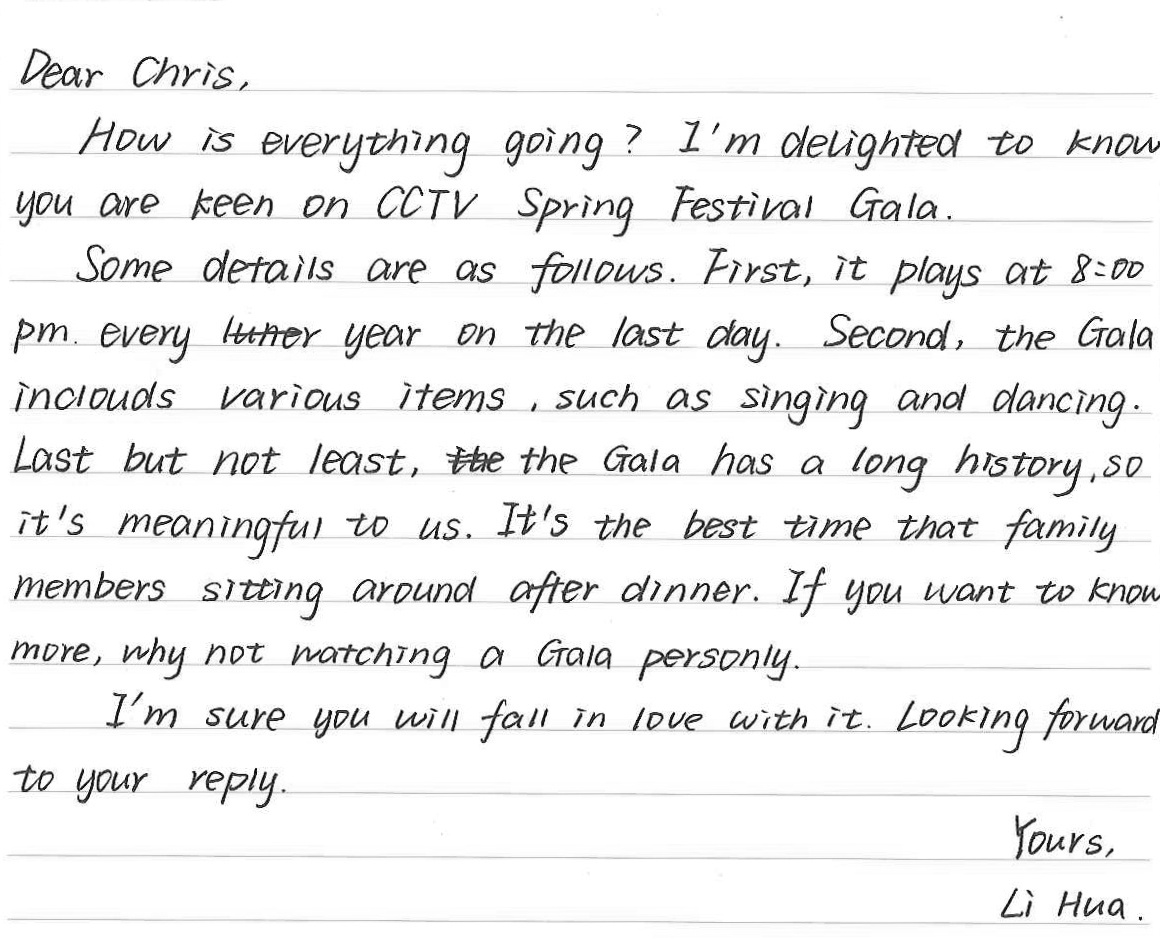 Dear Chris,
How is everything going? I'm delighted to know
you are keen on CCTV Spring Festival Gala.
Some details are as follows. First, it plays at 8:00
pm. every luner year on the last day. Second, the Gala
inclouds various items, such as singing and dancing.
Last but not least, the the Gala has a long history, so
it's meaningful to us. It's the best time that family
members sitting around after dinner. If you want to know
more, why not watching a Gala personly.
I'm sure you will fall in love with it. Looking forward
to your reply.
Yours,
Li Hua.